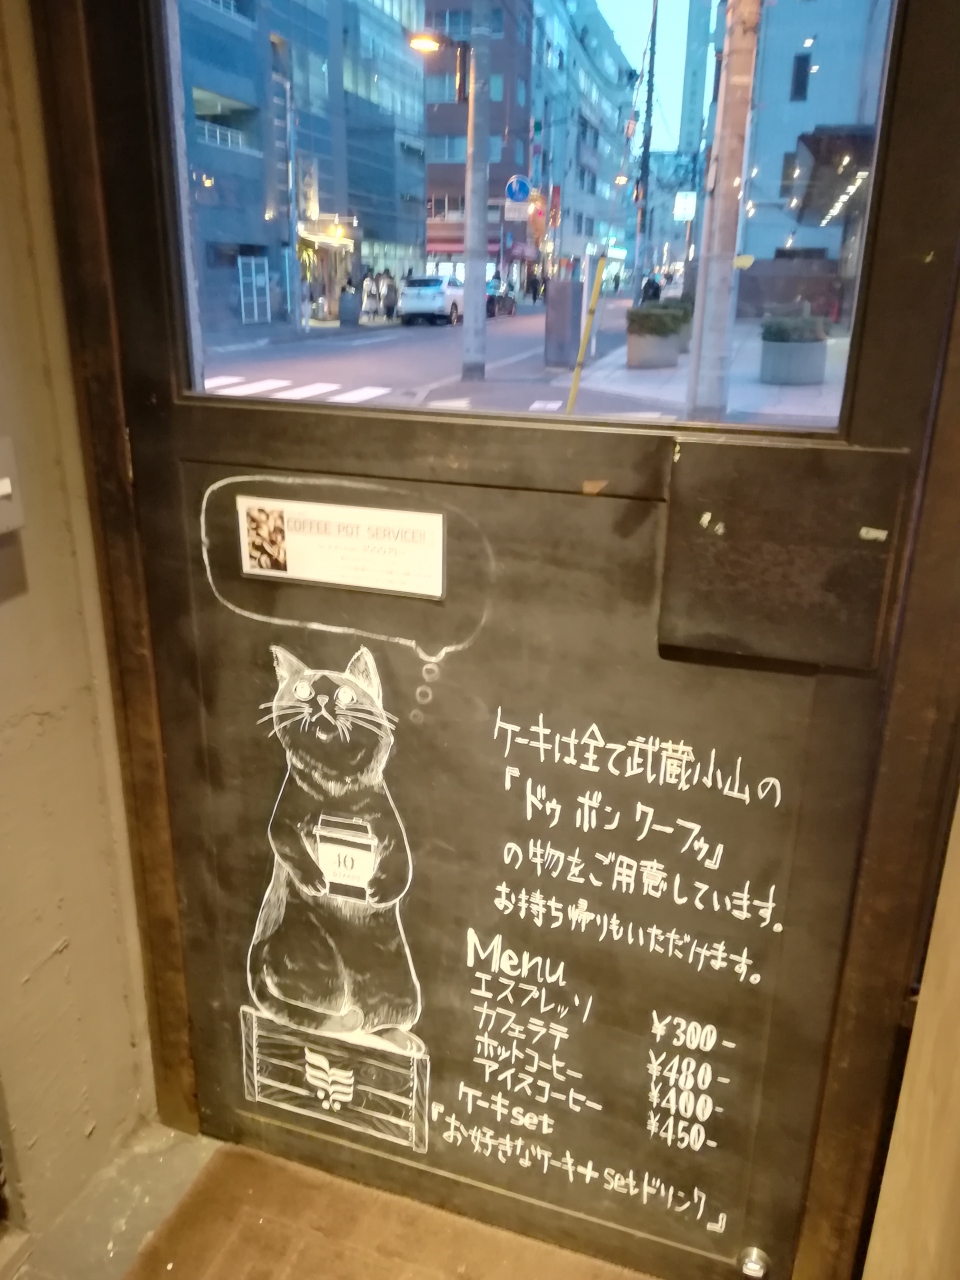 COFFEE POT SERVICE!!
40
ケーキは全て武蔵小山の
『ドゥ ボン クーフゥ』
の物をご用意しています。
お持ち帰りもいただけます。
Menu
エスプレッソ ¥300-
カフェラテ ¥480-
ホットコーヒー ¥400-
アイスコーヒー ¥450-
ケーキset
『お好きなケーキ+setドリンク』